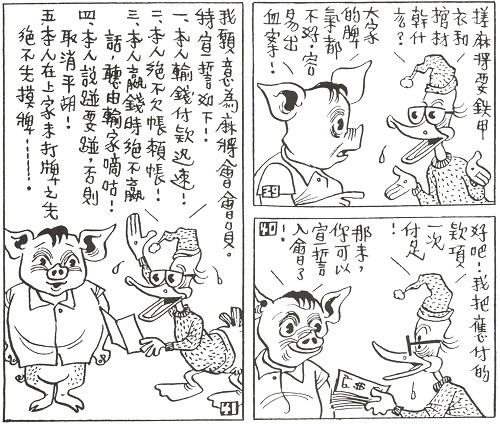 搓麻將要鉄甲
衣和
棺材
幹什
么?
大家
的脾
氣都
不好,容
易出
血案!
39
好吧!我把應付的
款項
一次
付足
!
那末,
你可以
宣誓
入會了
!
40
我願意為麻將會會員。
特宣誓如下!
一、本人輸錢付款迅速!
二、本人絕不欠帳賴帳!
三、本人贏錢時絕不贏
話,聽由輸家嘀咕!
四、本人說碰要碰,否則
取消平胡!
五、本人在上家未打牌之先
絕不先摸牌!……!
41